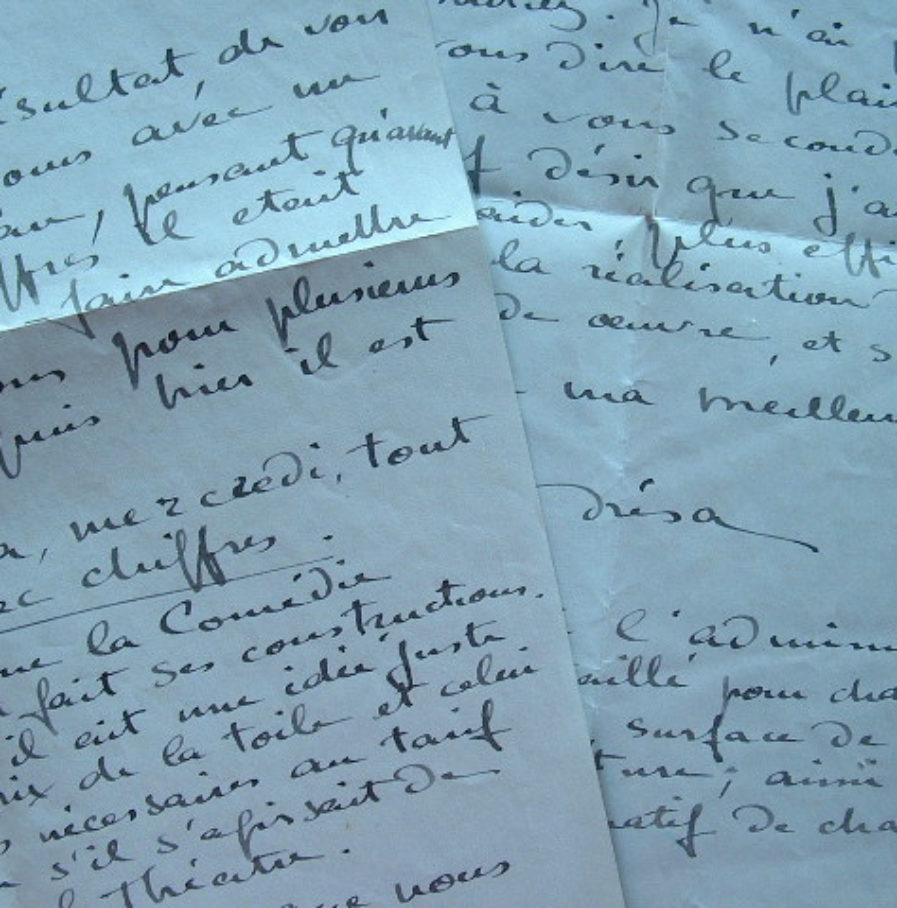 ésultat, de von
vous avec un
pensant qu'avant
il etait
fair admettre
pour plusieurs
hier il est
mercredi, tout
chiffres.
la Comédie
fait ses constructions.
il eut une idée juste
de la toile et celui
nécessaires au tarif
s'il s'agissait de
Théâtre.
nous
n'ai
vous dire le plai
à vous seconde
désir que j'a
aider plus effi
la réalisation
de œuvre, et s
ma meilleu
Drésa
l'admin
aillé pour cha
surface de
ture; ainsi
matif de cha